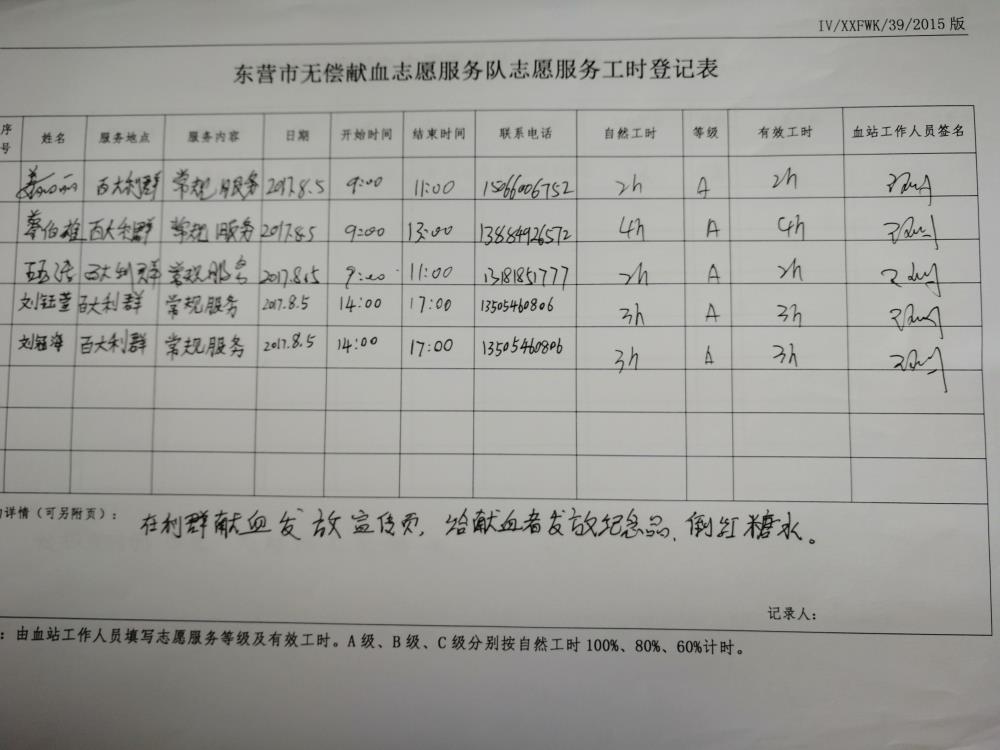 IV/XXFWK/39/2015 版
东营市无偿献血志愿服务队志愿服务工时登记表
序号 姓名 服务地点 服务内容 日期 开始时间 结束时间 联系电话 自然工时 等级 有效工时 血站工作人员签名
百大利群 常规服务 2017.8.5 9:00 11:00 15066006752 2h A 2h
蔡伯雄 百大利群 常规服务 2017.8.5 9:00 13:00 13884926572 4h A 4h
百大利群 常规服务 2017.8.5 9:00 11:00 13181851777 2h A 2h
刘钰萱 百大利群 常规服务 2017.8.5 14:00 17:00 13505460806 3h A 3h
刘钰海 百大利群 常规服务 2017.8.5 14:00 17:00 13505460806 3h A 3h
详情（可另附页）： 在利群献血发放宣传页，给献血者发放纪念品、倒红糖水。
记录人：
：由血站工作人员填写志愿服务等级及有效工时。A 级、B 级、C 级分别按自然工时 100%、80%、60%计时。